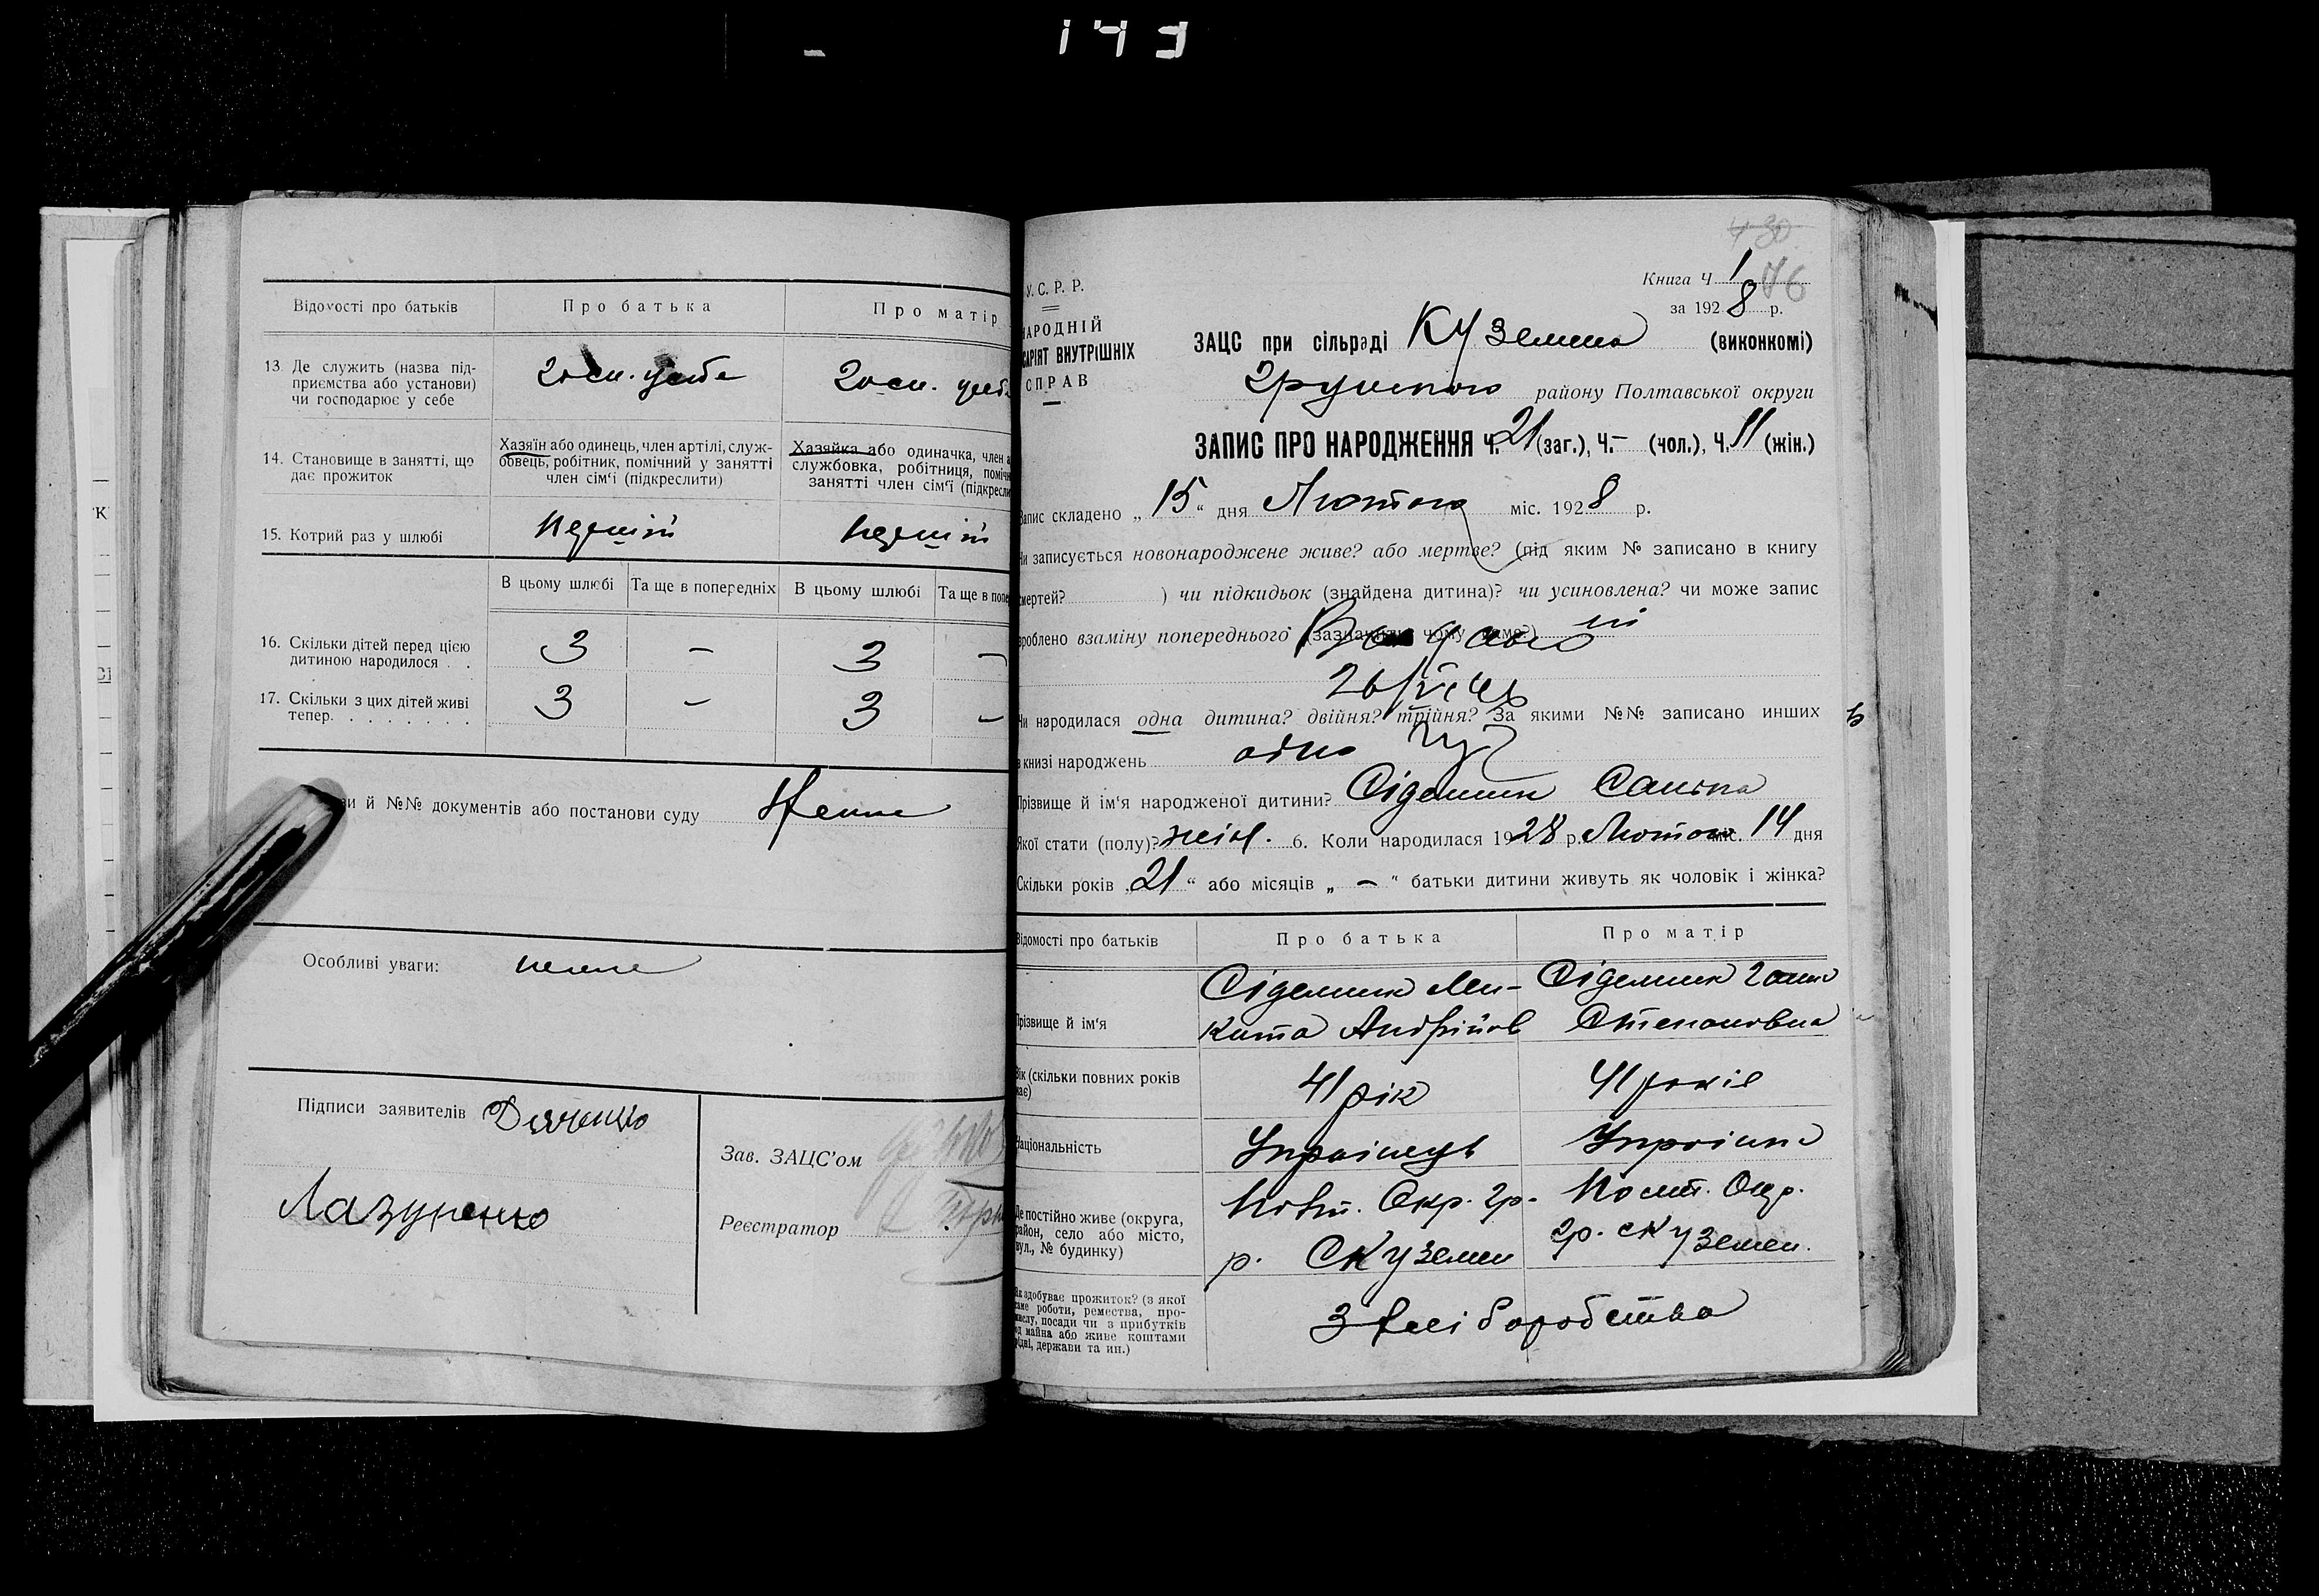 143
Відомості про батьків
Про батька
Про матір
13. Де служить (назва під-
приємства або установи)
чи господарює у себе
Госп. у себе
Госп. у себе
14. Становище в занятті, що
дає прожиток
Хазяїн або одинець, член артілі, служ-
бовець, робітник, помічний у занятті
член сім'ї (підкреслити)
Хазяйка або одиначка, член а
службовка, робітниця, поміч
занятті член сім'ї (підкресли
15. Котрий раз у шлюбі
перший
перший
В цьому шлюбі
Та ще в попередніх
В цьому шлюбі
Та ще в попе
16. Скільки дітей перед цією
дитиною народилося . .
3 - 3 -
17. Скільки з цих дітей живі
тепер. . . . . . . .
3 - 3 -
ви й №№ документів або постанови суду
Немає
Особливі уваги:
немає
Підписи заявителів
Дяченко
Лазуренко
Зав. ЗАЦС'ом
Реєстратор
430
Книга Ч 1
76
за 1928 р.
У. С. Р. Р.
НАРОДНІЙ
САРІЯТ ВНУТРІШНІХ
СПРАВ
ЗАЦС при сільраді Куземина (виконкомі)
Грунського району Полтавської округи
ЗАПИС ПРО НАРОДЖЕННЯ Ч. 21 (заг.), Ч. – (чол.), Ч. 11 (жін.)
Запис складено „ 15 “ дня Лютого міс. 1928 р.
Чи записується новонароджене живе? або мертве? (під яким № записано в книгу
смертей? ) чи підкидьок (знайдена дитина)? чи усиновлена? чи може запис
зроблено взаміну попереднього (зазначити чому саме?)
Чи народилася одна дитина? двійня? трійня? За якими №№ записано инших
в книзі народжень одна
Прізвище й ім'я народженої дитини? Сіделник Санька
Якої стати (полу)? жін. 6. Коли народилася 1928 р. Лютого міс. 14 дня
Скільки років „ 21 “ або місяців „ – “ батьки дитини живуть як чоловік і жінка?
Відомості про батьків
Про батька
Про матір
Прізвище й ім'я
Сіделник Ми-
кита Андрійов
Сіделник Ганна
Степановна
Вік (скільки повних років
має)
41 рік
41 років
Національність
Українець
Українка
Де постійно живе (округа,
район, село або місто,
вул., № будинку)
Полт. Окр. Гр.
р. С Куземен
Полт. Окр.
Гр. с Куземен.
Як здобуває прожиток? (з якої
саме роботи, ремества, про-
мислу, посади чи з прибутків
од майна або живе коштами
рідні, держави та ин.)
З хліборобства